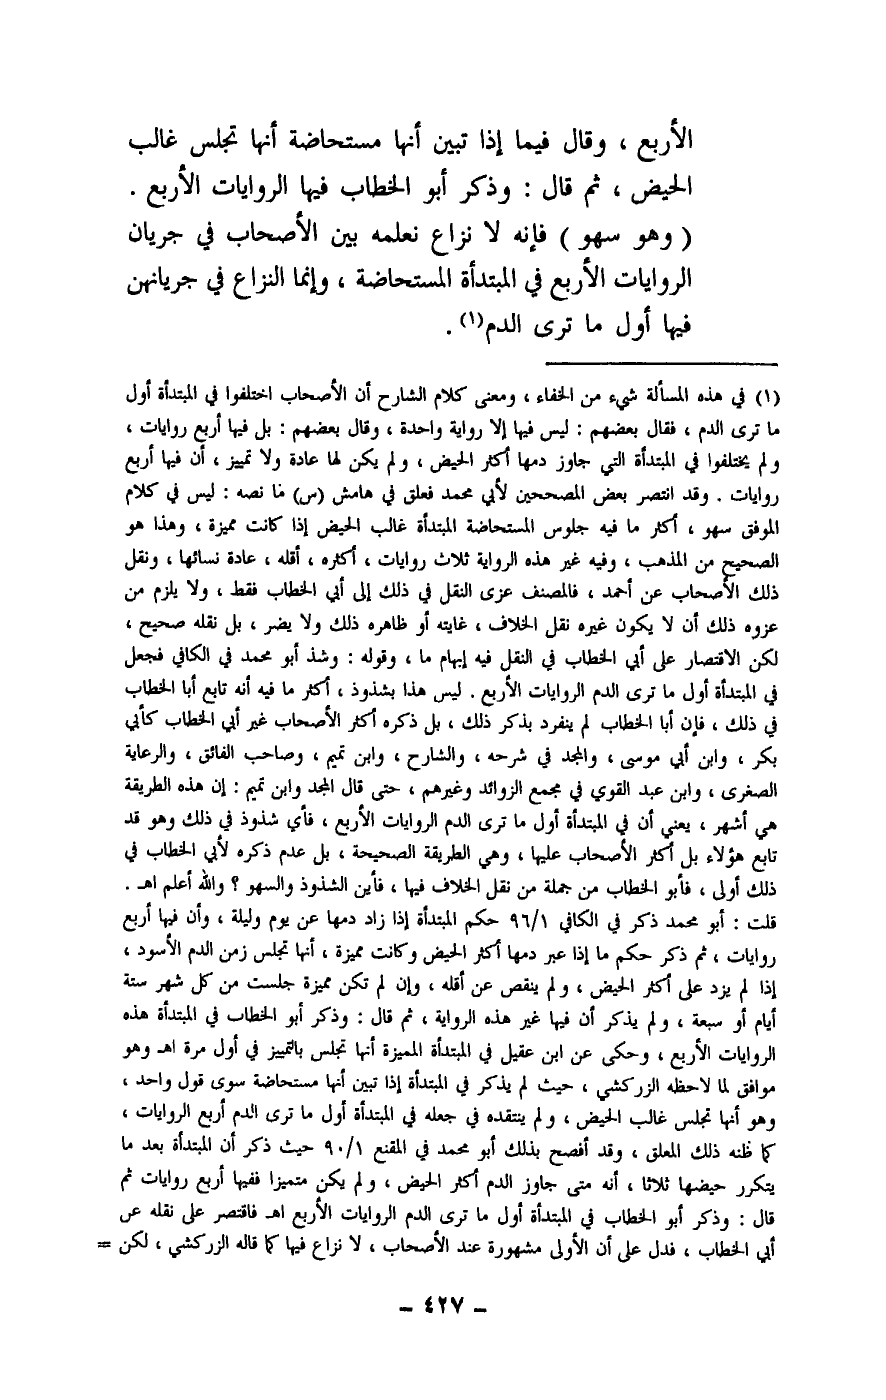 الأربع ، وقال فيما إذا تبين أنها مستحاضة أنها تجلس غالب
الحيض ، ثم قال : وذكر أبو الخطاب فيها الروايات الأربع .
( وهو سهو ) فإنه لا نزاع نعلمه بين الأصحاب في جريان
الروايات الأربع في المبتدأة المستحاضة ، وإنما النزاع في جريانهن
فيها أول ما ترى الدم(١) .
(١) في هذه المسألة شيء من الخفاء ، ومعنى كلام الشارح أن الأصحاب اختلفوا في المبتدأة أول
ما ترى الدم ، فقال بعضهم : ليس فيها إلا رواية واحدة ، وقال بعضهم : بل فيها أربع روايات ،
ولم يختلفوا في المبتدأة التي جاوز دمها أكثر الحيض ، ولم يكن لها عادة ولا تمييز ، أن فيها أربع
روايات . وقد انتصر بعض المصححين لأبي محمد فعلق في هامش (س) لما نصه : ليس في كلام
الموفق سهو ، أكثر ما فيه جلوس المستحاضة المبتدأة غالب الحيض إذا كانت مميزة ، وهذا هو
الصحيح من المذهب ، وفيه غير هذه الرواية ثلاث روايات ، أكثره ، أقله ، عادة نسائها ، ونقل
ذلك الأصحاب عن أحمد ، فالمصنف عزى النقل في ذلك إلى أبي الخطاب فقط ، ولا يلزم من
عزوه ذلك أن لا يكون غيره نقل الخلاف ، غايته أو ظاهره ذلك ولا يضر ، بل نقله صحيح ،
لكن الاقتصار على أبي الخطاب في النقل فيه إبهام ما ، وقوله : وشذ أبو محمد في الكافي فجعل
في المبتدأة أول ما ترى الدم الروايات الأربع . ليس هذا بشذوذ ، أكثر ما فيه أنه تابع أبا الخطاب
في ذلك ، فإن أبا الخطاب لم ينفرد بذكر ذلك ، بل ذكره أكثر الأصحاب غير أبي الخطاب كأبي
بكر ، وابن أبي موسى ، والمجد في شرحه ، والشارح ، وابن تميم ، وصاحب الفائق ، والرعاية
الصغرى ، وابن عبد القوي في مجمع الزوائد وغيرهم ، حتى قال المجد وابن تميم : إن هذه الطريقة
هي أشهر ، يعني أن في المبتدأة أول ما ترى الدم الروايات الأربع ، فأي شذوذ في ذلك وهو قد
تابع هؤلاء بل أكثر الأصحاب عليها ، وهي الطريقة الصحيحة ، بل عدم ذكره لأبي الخطاب في
ذلك أولى ، فأبو الخطاب من جملة من نقل الخلاف فيها ، فأين الشذوذ والسهو ؟ والله أعلم اهـ .
قلت : أبو محمد ذكر في الكافي ٩٦/١ حكم المبتدأة إذا زاد دمها عن يوم وليلة ، وأن فيها أربع
روايات ، ثم ذكر حكم ما إذا عبر دمها أكثر الحيض وكانت مميزة ، أنها تجلس زمن الدم الأسود ،
إذا لم يزد على أكثر الحيض ، ولم ينقص عن أقله ، وإن لم تكن مميزة جلست من كل شهر ستة
أيام أو سبعة ، ولم يذكر أن فيها غير هذه الرواية ، ثم قال : وذكر أبو الخطاب في المبتدأة هذه
الروايات الأربع ، وحكى عن ابن عقيل في المبتدأة المميزة أنها تجلس بالتمييز في أول مرة اهـ وهو
موافق لما لاحظه الزركشي ، حيث لم يذكر في المبتدأة إذا تبين أنها مستحاضة سوى قول واحد ،
وهو أنها تجلس غالب الحيض ، ولم ينتقده في جعله في المبتدأة أول ما ترى الدم أربع الروايات ،
كما ظنه ذلك المعلق ، وقد أفصح بذلك أبو محمد في المقنع ٩٠/١ حيث ذكر أن المبتدأة بعد ما
يتكرر حيضها ثلاثا ، أنه متى جاوز الدم أكثر الحيض ، ولم يكن متميزا ففيها أربع روايات ثم
قال : وذكر أبو الخطاب في المبتدأة أول ما ترى الدم الروايات الأربع اهـ فاقتصر على نقله عن
أبي الخطاب ، فدل على أن الأولى مشهورة عند الأصحاب ، لا نزاع فيها كما قاله الزركشي ، لكن =
- ٤٢٧ -